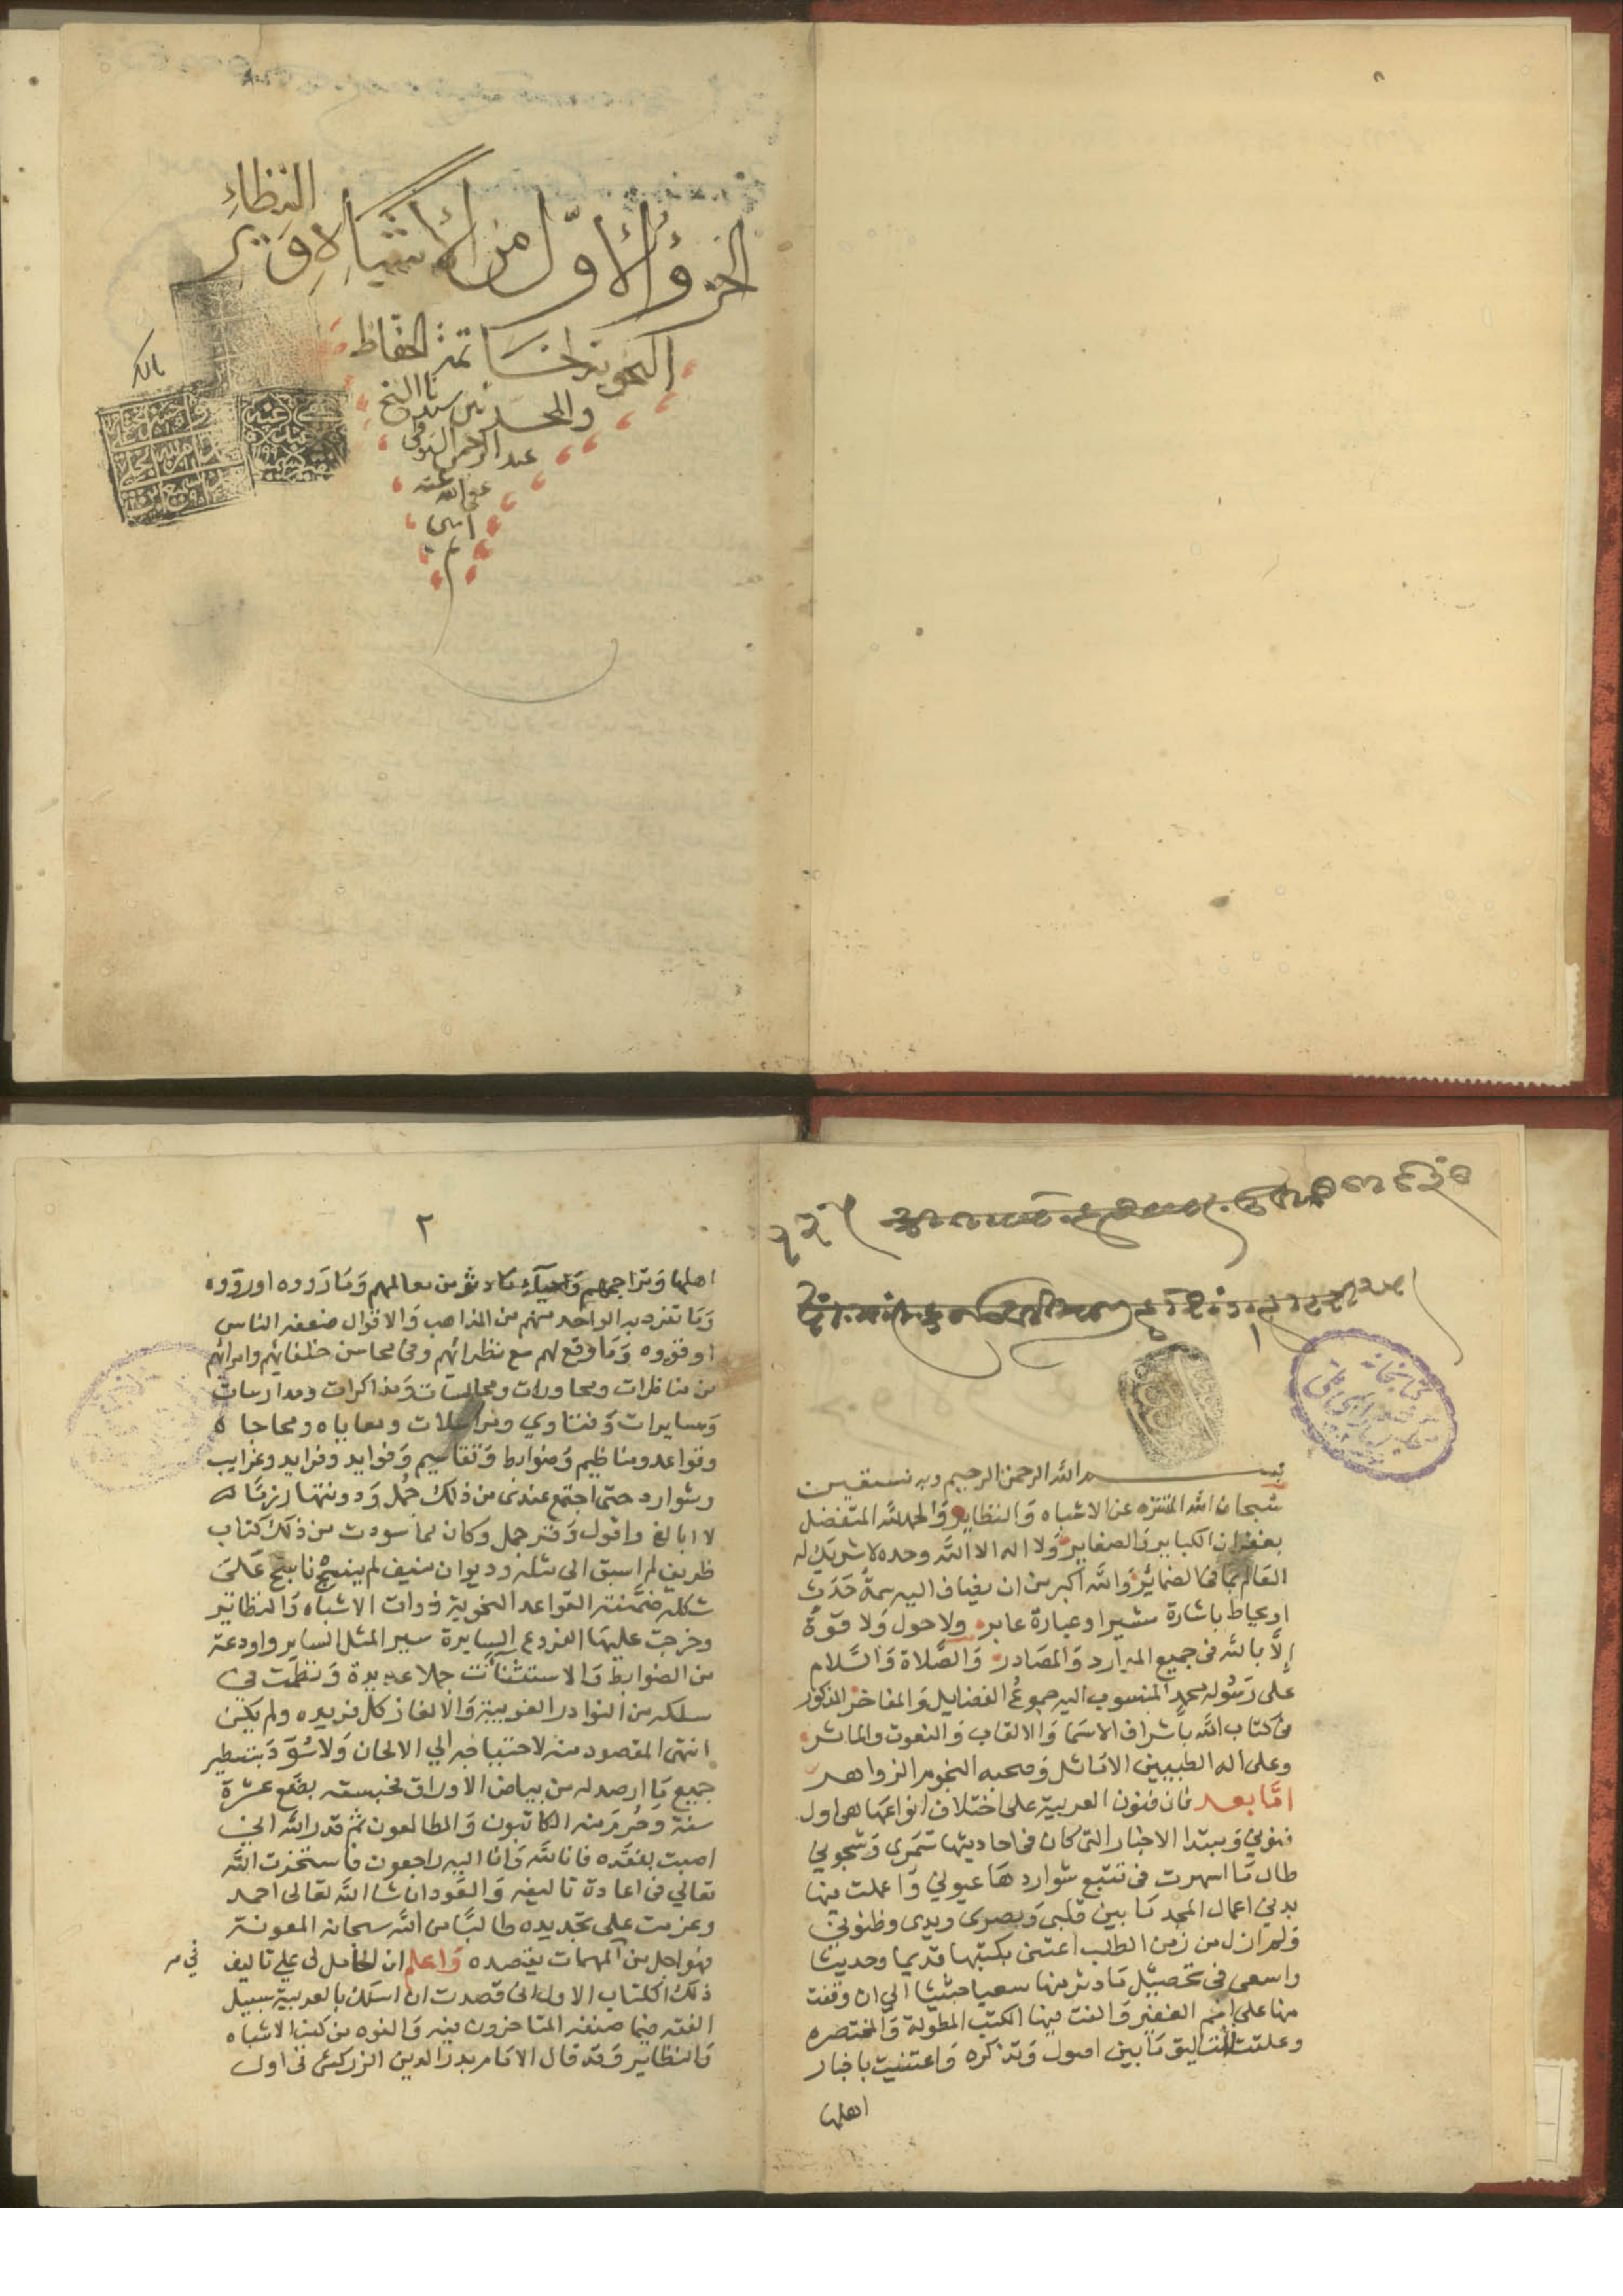 الجزؤ الأوّل من الأشباه و النظائر
النحوية لخاتمة الحفاظ
والمحدثين سيدنا الشيخ
عبد الرحمن السيوطي
عفى الله عنه
امين
م
بسم الله الرحمن الرحيم وبه نستعين
سبحان الله المتنزه عن الاشباه وَالنظاير وَالحمد لله المتفضل
بغفران الكباير وَالصغاير وَلا اله الا الله وحده لا شريك له
العَالم بما فى الضمائر وَالله اكبر من ان يضاف اليه سمةُ حَدَث
او يحاط باشارة مشير او عبارة عابر ولا حول وَلا قوّة
إلاَّ بالله فى جميع الموارد وَالمصَادر وَالصَّلاة وَالسَّلام
على رَسُوله محمد المنسوب اليه جموعُ الفضايل وَالمفاخر المذكور
فى كتاب الله باشراف الاسَما وَالالقاب وَالنعوت والماثر
وعلى اله الطيبين الاماثل وَصحبه النجوم الزواهر
امَّا بعد فان فنون العربية على اختلاف انواعهَا هى اول
فنوني وَمبتدا الاخبار التى كان فى احاديثها سَمَرى وَشجوني
طال مَا اسهرت فى تتبع شواردهَا عيوني وَاعملت فيها
بدني اعمال المجد مَا بين قلبى وَبصرى ويدى وظنوني
وَلم ازل من زمن الطلب اعتنى بكتبها قديما وحديثا
واسعى فى تحصيل مَا دثر منها سعيا حثيثا الى ان وقفت
منها على الجم الغفير وَالفت فيها الكتب المطولة وَالمختصره
وعلقت التعاليق مَا بين اصول وَتذكره وَاعتنيت باخبار
اهلها
٢
اهلها وَتراجمهم وَاحيآء مَا دثر من معالمهم وَمَا رَووه اوروّوه
وَمَا تفرد به الواحد منهم من المذاهب وَالاقوال ضعفه الناس
او قووه وَمَا وقع لهم مع نظرائهم وفى محاسن خلفائهم وامرائهم
من مناظرات ومحاورات ومجالسات وَمذاكرات ومدارسات
وَمسايرات وَفتاوي ومراسلات ومعاياه ومحاجاه
وقواعد ومناظيم وَضوابط وَتقاسيم وَفوايد وفرايد وغرايب
وشوارد حتى اجتمع عندى من ذلك جُمل وَدونتها رزمًا له
لا ابالغ واقول وَقر جمل وكان لما سودت من ذلك كتاب
ظريف لم اسبق الى مثله وديوان منيف لم ينسج ناسج عَلىَ
شكله ضمَّنته القواعد النحوية ذوات الاشباه وَالنظائر
وخرجت عليهَا الفروع السايرة سير المثل الساير واودعته
من الضوابط وَالاستثنآت جملا عديدة وَنظمت في
سلكه من النوادر الغريبة وَالالغاز كل فريده ولم يكن
انتهى المقصود منه لاحتياجه الي الالحاق وَلا سُوِّدَ بتسطير
جميع مَا ارصد له من بياض الاوراق فحبسته بضع عشرة
سنة وحُرِمَ منه الكاتبون وَالمطالعون ثم قدر الله اني
اصبت بفقده فانا لله وَانا اليه راجعون فاستخرت الله
تعالي فى اعادة تاليفه وَالعَود ان شا الله تعالى احمد
وعزمت على تجديده طالبًا من الله سبحانه المعونة
فهو اجل من المهمات يقصده وَاعلم ان الحامل لى علي تاليف
ذلك الكتاب الاول انى قصدت ان اسلك بالعربية سبيل
الفقه فيما صنفه المتاخرون فيه وَالفوه من كتب الاشباه
وَالنظاير وَقد قال الامَام بدر الدين الزركشى فى اول